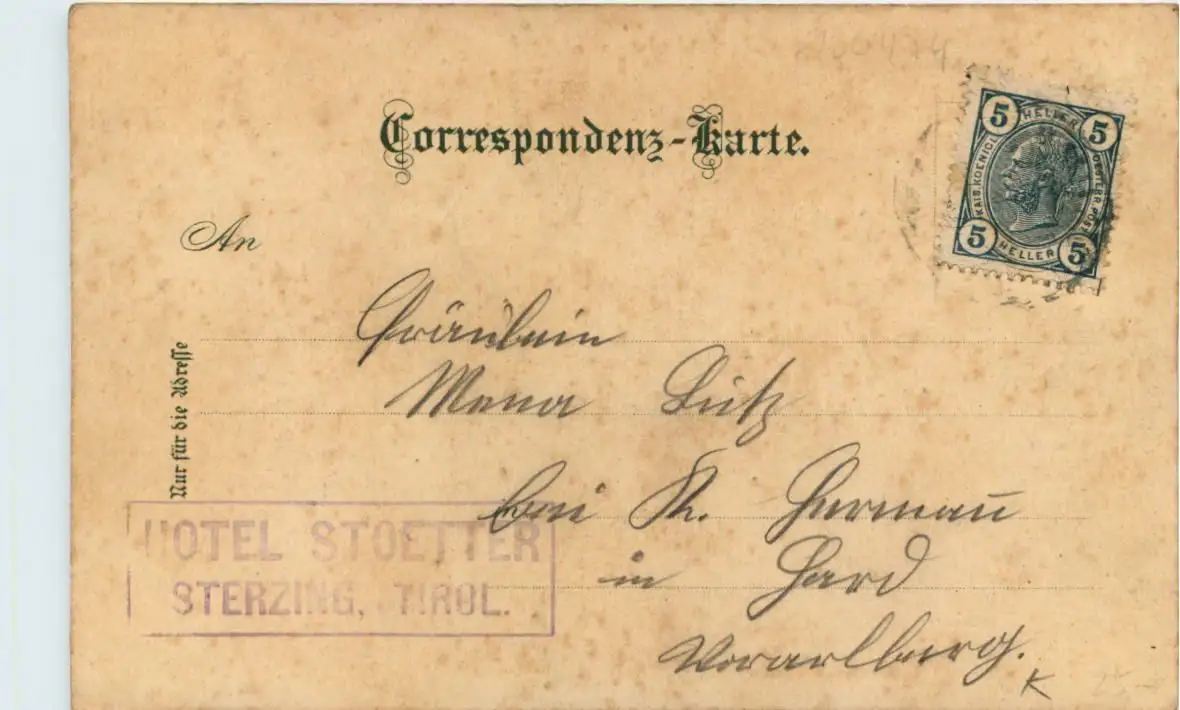 Correspondenz-Karte.
5 HELLER 5
KAIS. KOENIGL. OESTERR. POST
5 HELLER 5
An
Fräulein
Mena Lutz
bei K. Hermann
in Hard
Vorarlberg.
K
Nur für die Adresse
HOTEL STOETTER
STERZING, TIROL.